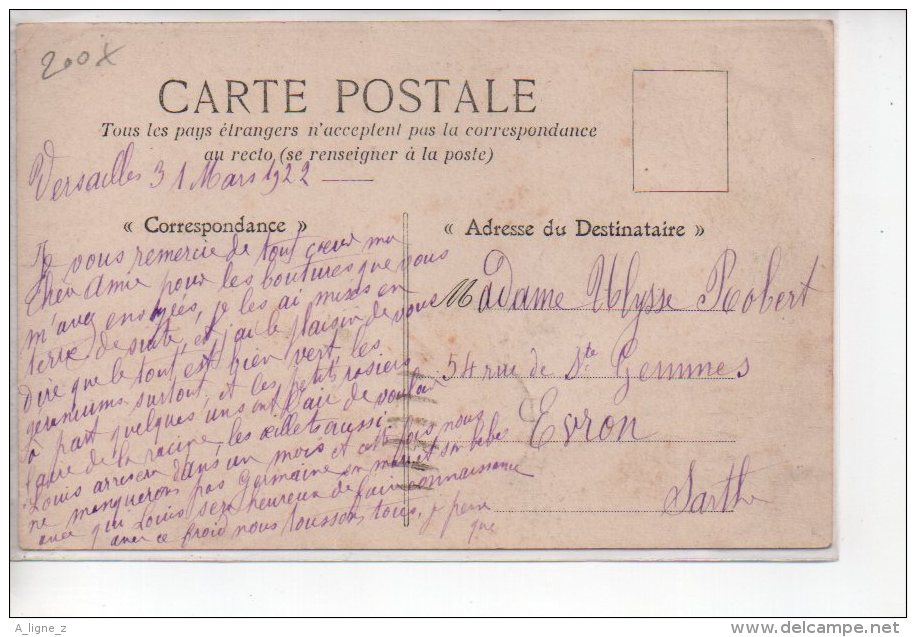 200X
CARTE POSTALE
Tous les pays étrangers n'acceptent pas la correspondance
au recto (se renseigner à la poste)
Versailles 31 Mars 1922
« Correspondance »
« Adresse du Destinataire »
Je vous remercie de tout cœur ma
chère Amie pour les boutures que vous
m'avez envoyées, je les ai mises en
terre de suite, et j'ai le plaisir de vous
dire que le tout est bien vert, les
géraniums surtout, et les petits rosiers
à part quelques uns ont l'air de vouloir
faire de la racine, les œillets aussi.
Louis arrivera dans un mois et cette fois nous
ne manquerons pas Germaine son mari et son bébé
avec qui Louis sera heureux de faire connaissance
avec ce froid nous toussons tous, je pense
que
Madame Ulysse Robert
54 rue de Ste Gemmes
Evron
Sarthe
A_ligne_z
http://www.delcampe.net